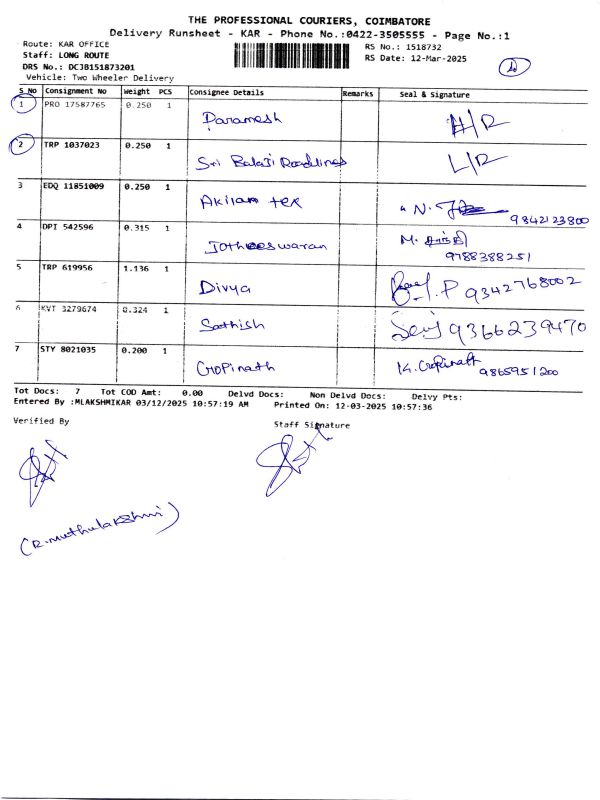 THE PROFESSIONAL COURIERS, COIMBATORE
Delivery Runsheet - KAR - Phone No.:0422-3505555 - Page No.:1
Route: KAR OFFICE RS No.: 1518732
Staff: LONG ROUTE RS Date: 12-Mar-2025
DRS No.: DCJB151873201
Vehicle: Two Wheeler Delivery
S No Consignment No Weight PCS Consignee Details Remarks Seal & Signature
1 PRO 17587765 0.250 1 Paramesh H/R
2 TRP 1037023 0.250 1 Sri Balaji Roadlines L/R
3 EDQ 11851009 0.250 1 Akilan tex N. 9842123800
4 DPI 542596 0.315 1 Jotheeswaran M. 9788388251
5 TRP 619956 1.136 1 Divya P 9342768002
6 KVT 3279674 0.324 1 Sathish 9366239470
7 STY 8021035 0.200 1 Gopinath K. Gopinath 9865951200
Tot Docs: 7 Tot COD Amt: 0.00 Delvd Docs: Non Delvd Docs: Delvy Pts:
Entered By :MLAKSHMIKAR 03/12/2025 10:57:19 AM Printed On: 12-03-2025 10:57:36
Verified By Staff Signature
(R.Muthulakshmi)